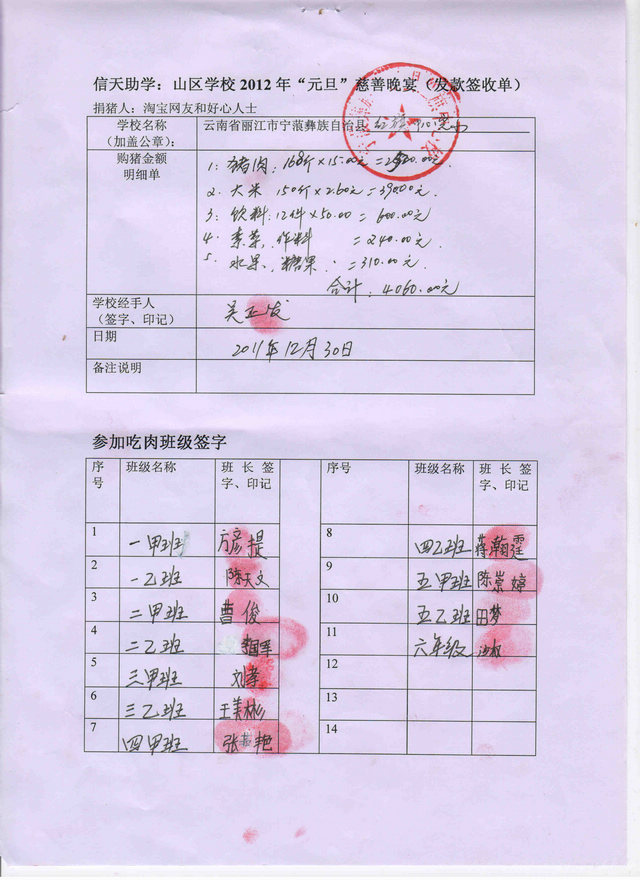 信天助学：山区学校2012年“元旦”慈善晚宴（发款签收单）
捐猪人：淘宝网友和好心人士
学校名称
（加盖公章）：
云南省丽江市宁蒗彝族自治县
购猪金额
明细单
1：猪肉：168斤×15.00=2520.00元
2、大米 150斤×2.60元=390.00元
3：饮料：12件×50.00=600.00元
4、素菜，作料 =240.00元
5、水果，糖果 =310.00元
合计：4060.00元
学校经手人
（签字、印记）
吴正发
日期
2011年12月30日
备注说明
参加吃肉班级签字
序号 班级名称 班长签字、印记
1 一甲班 方彦提
2 一乙班 陈天文
3 二甲班 曹俊
4 二乙班
5 三甲班 刘孝
6 三乙班 王美彬
7 四甲班 张 艳
序号 班级名称 班长签字、印记
8 四乙班 蒋瀚霆
9 五甲班 陈崇婷
10 五乙班 田梦
11 六年级
12
13
14